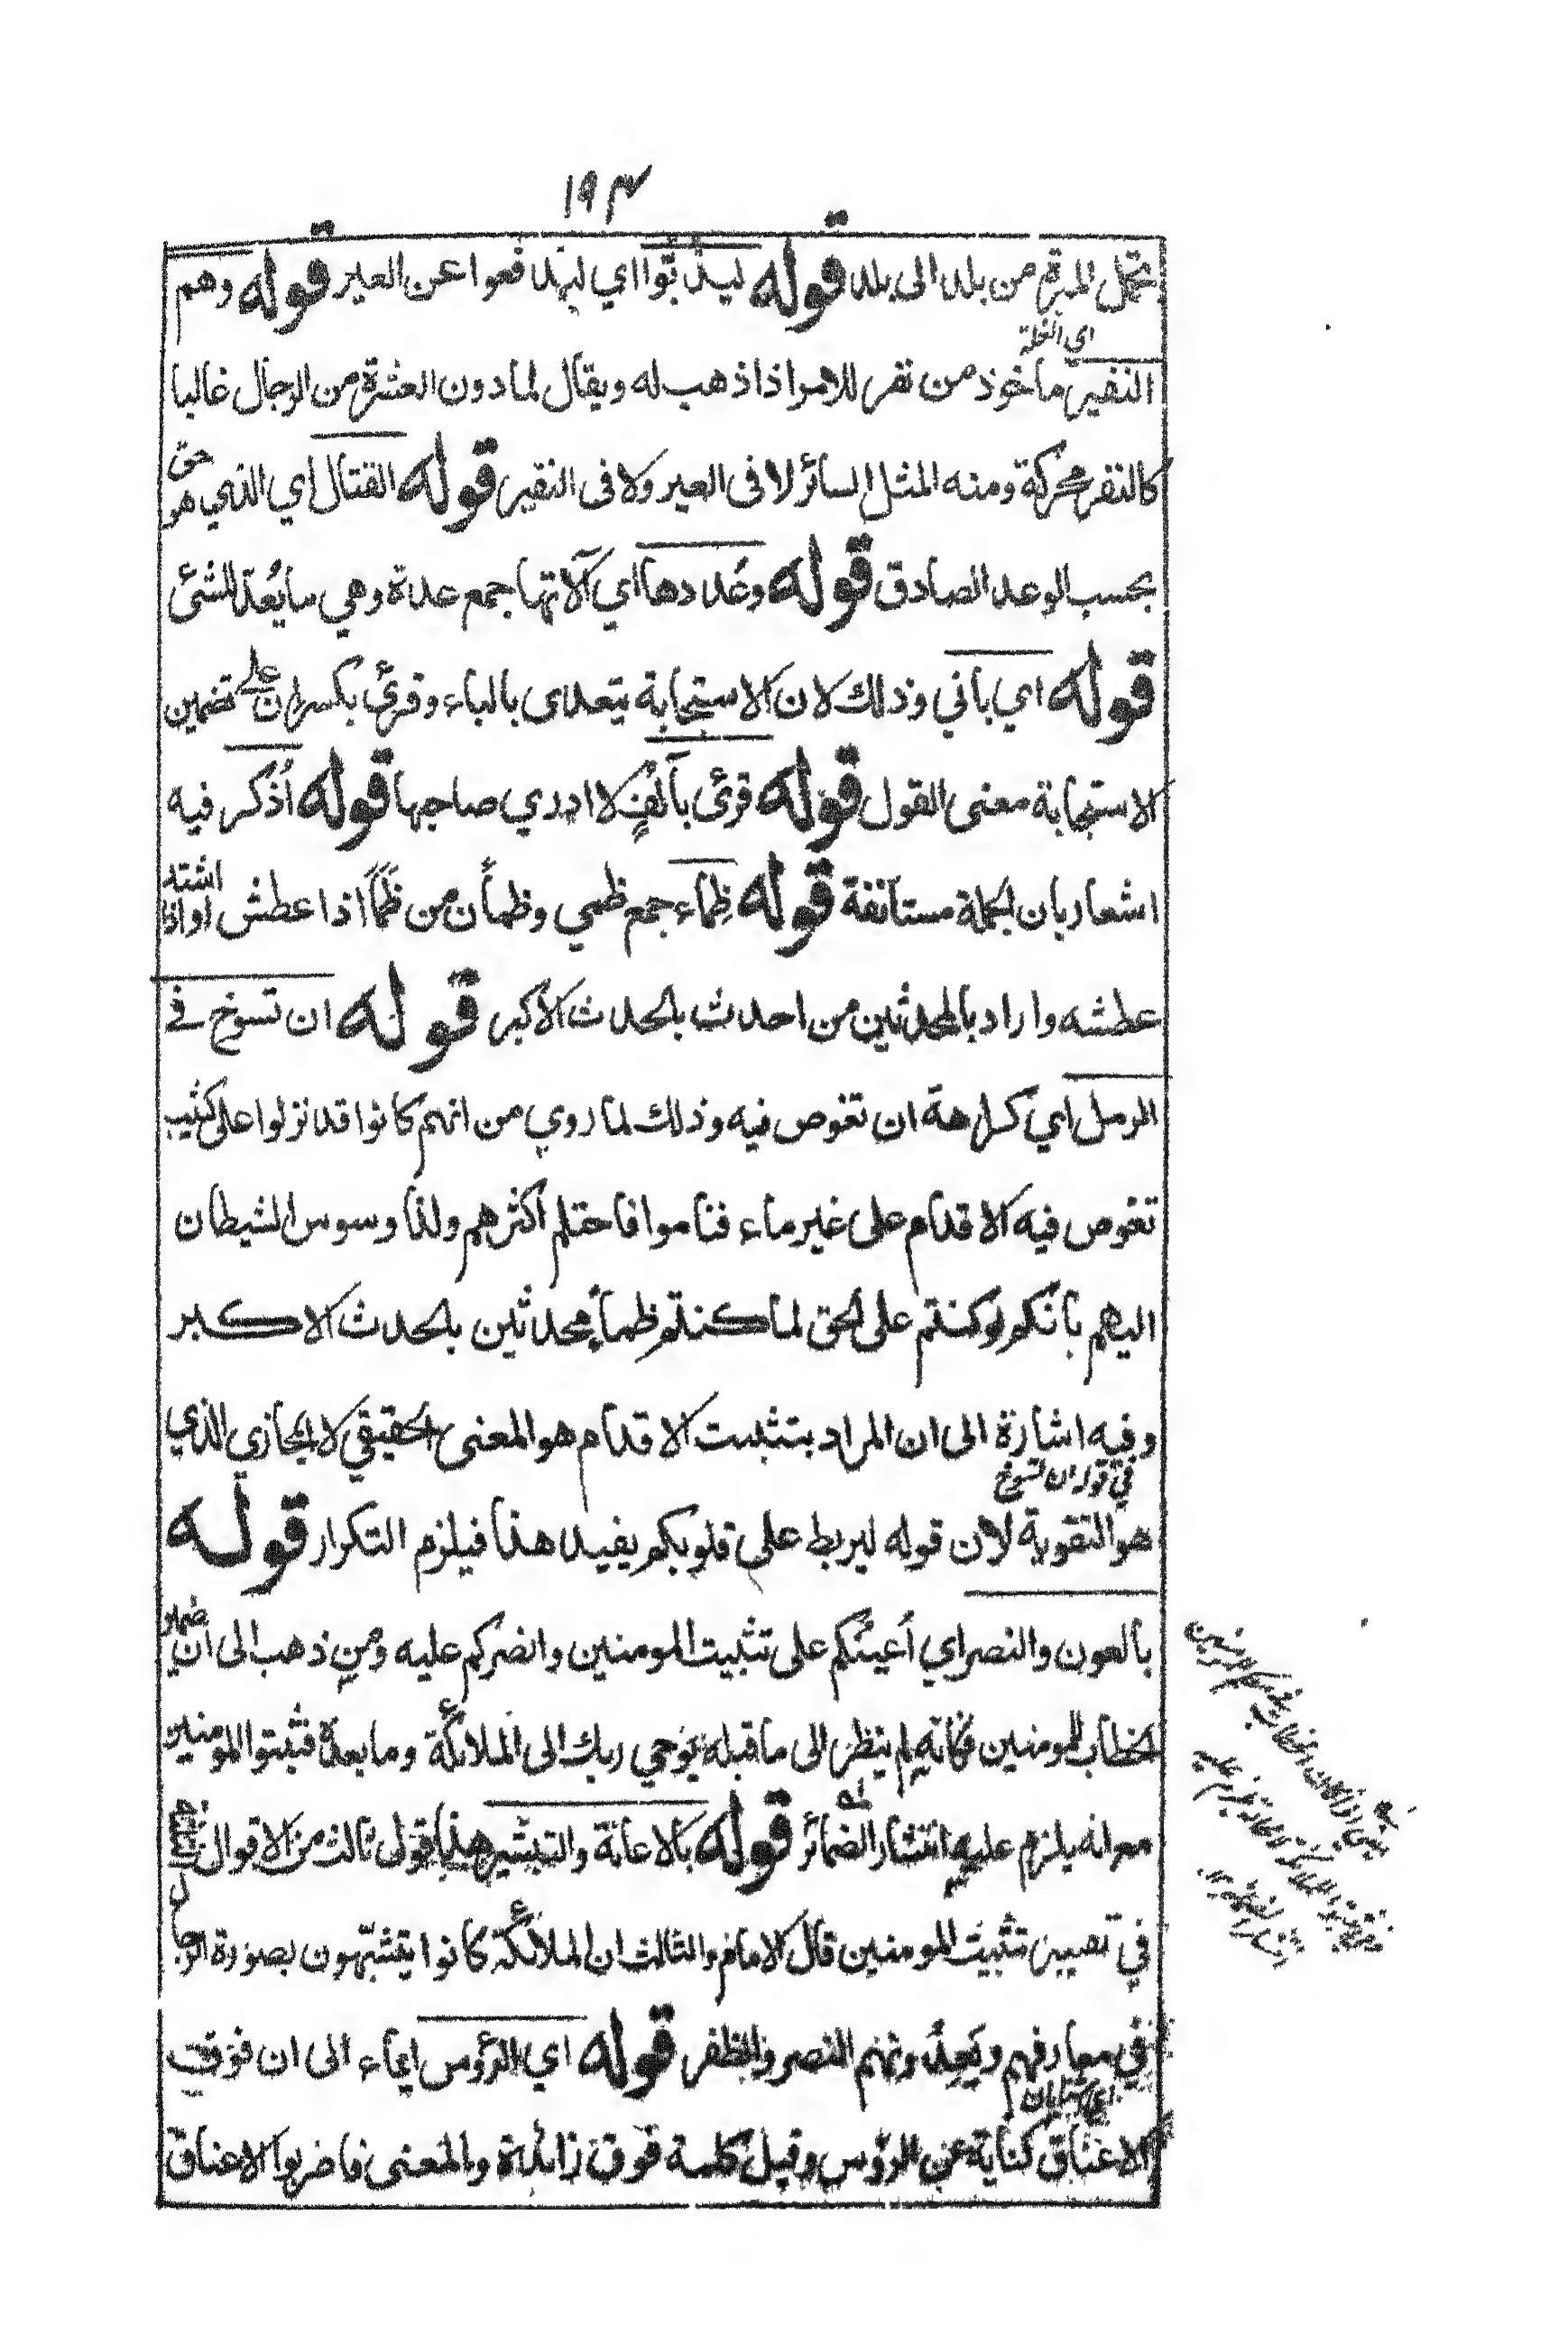 ۱۹۴
يحمل الميرة من بلد الى بلد قوله ليذبّوا اي ليدفعوا عن العير قوله وهم
اي الغلة
النفير ماخوذ من نفر للامر اذا ذهب له ويقال لما دون العشرة من الرجال غالبا
كالنفر محركة ومنه المثل السائر لا فى العير ولا فى النفير قوله القتال اي الذي هو حق
بحسب الوعد الصادق قوله وعُددها اي آلاتها جمع عدة وهي ما يُعدّ للشئ
قوله اي باني وذلك لان الاستجابة يتعدى بالباء وقرئ بكسر ان على تضمين
الاستجابة معنى القول قوله قرئ بآلُفٍ لا ادري صاحبها قوله اُذكر فيه
اشعار بان الجملة مستأنفة قوله ظِماء جمع ظمي وظمأن من ظَمَأً اذا عطش او اذا اشتد
عطشه واراد بالمحدثين من احدث بالحدث الاكبر قوله ان تسوخ في
الرمل اي كراهة ان تغوص فيه وذلك لما روي من انهم كانوا قد نزلوا على كثيب
تغوص فيه الاقدام على غير ماء فناموا فاحتلم اكثرهم ولذا وسوس الشيطان
اليهم بانكم لو كنتم على الحق لما كنتم ظمأ محدثين بالحدث الاكبر
وفيه اشارة الى ان المراد بتثبيت الاقدام هو المعنى الحقيقي لا المجازي الذي
في قوله ان تسوخ
هو التقوية لان قوله ليربط على قلوبكم يفيد هذا فيلزم التكرار قوله
بالعون والنصر اي اُعينُكم على تثبيت المومنين وانصركم عليه ومن ذهب الى ان ضمائر
الخطاب للمومنين فكانه لم ينظر الى ما قبله يُوحي ربك الى الملائكة وما بعده فثبتوا المومنين
مع انه يلزم عليه انتشار الضمائر قوله بالاعانة والتبشير هذا قول ثالث من الاقوال
في تعيين تثبيت المومنين قال الامام والثالث ان الملائكة كانوا يتشبّهون بصورة الرجال
في معارفهم ويَعِدُونهم النصر والظفر قوله اي الرؤس ايماء الى ان فوق
الاعناق كناية عن الرؤس وقيل كلمة فوق زائدة والمعنى فاضربوا الاعناق